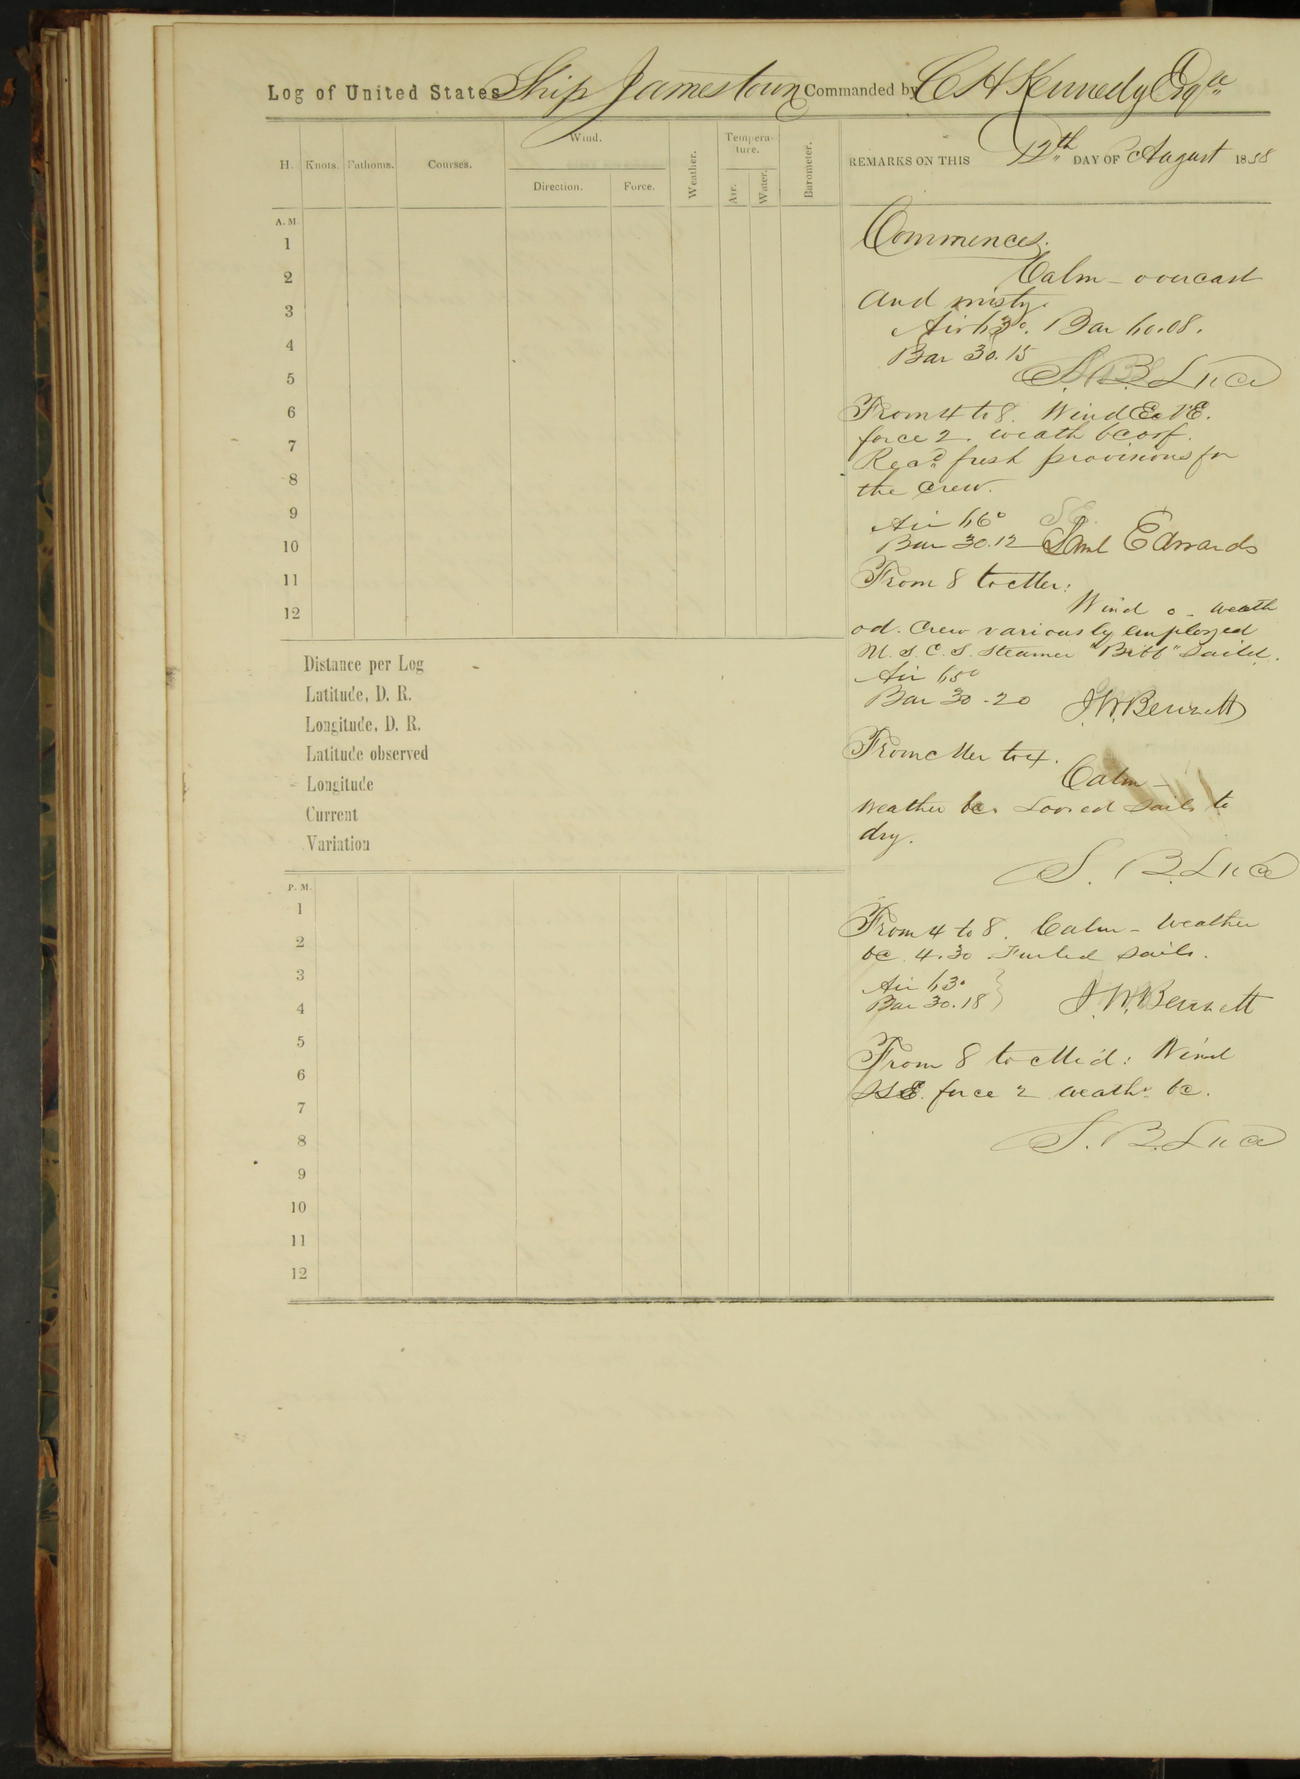 Log of United States Ship Jamestown Commanded by C H Kennedy Esqe
H. Knots. Fathoms. Courses. Wind. Direction. Force. Weather. Tempera-ture. Air. Water. Barometer. REMARKS ON THIS 12th DAY OF August 1858
A. M.
1
2
3
4
5
6
7
8
9
10
11
12
Commences.
Calm - overcast
And misty.
Air 63°. Bar 60.08.
Bar 30.15
S. B. Luce
From 4 to 8. Wind
force 2. weath
Recd fresh provisions for
the crew.
Air 66° S E.
Bar 30.12 Saml Edwards
From 8 to Mer:
Wind 0 - weath
od. Crew variously employed
U. S. C. S. Steamer "Bibb" Sailed.
Air 65°
Bar 30.20 J. W. Bennett
From Mer to 4.
Calm -
Weather bc. Loosed Sails to
dry.
S. B. Luce
From 4 to 8. Calm - Weather
bc 4.30 Furled Sails.
Air 63°
Bar 30.18 J. W. Bennett
From 8 to Mid: Wind
SSE. force 2 weathr bc.
S. B. Luce
Distance per Log
Latitude, D. R.
Longitude, D. R.
Latitude observed
Longitude
Current
Variation
P. M.
1
2
3
4
5
6
7
8
9
10
11
12